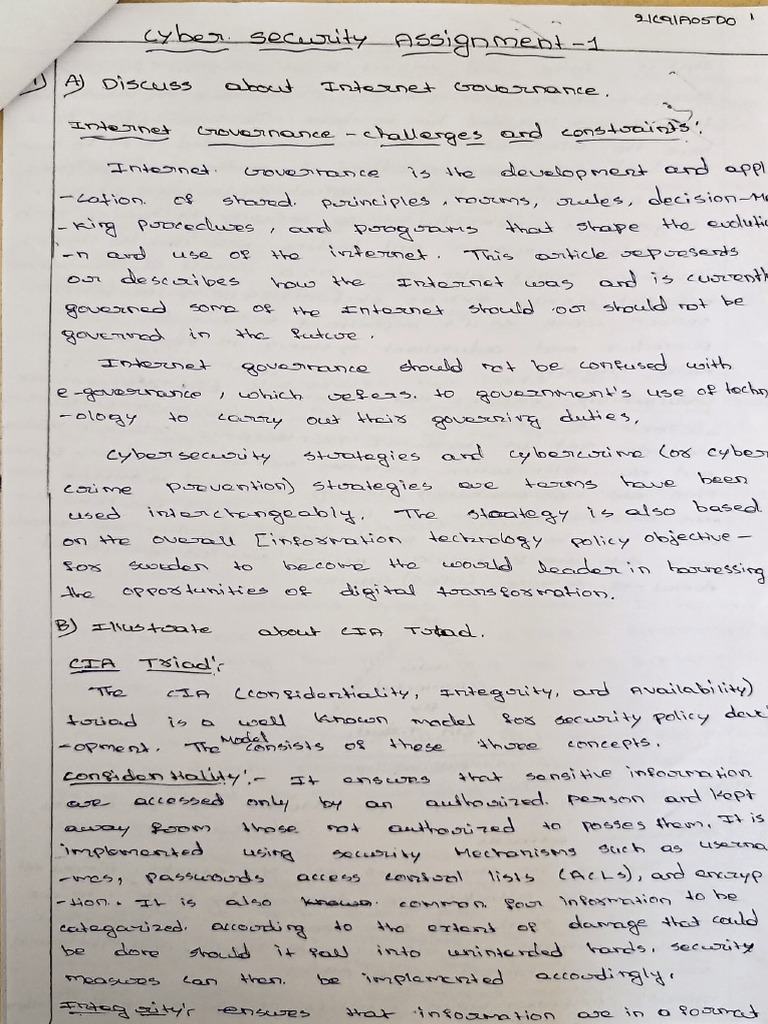 21C91A05D0 1
Cyber security Assignment-1
1) A) Discuss about Internet Governance.
Internet Governance - challenges and constraints:
Internet Governance is the development and appl
-cation of shared principles, norms, rules, decision-Ma
-king procedures, and programs that shape the evolutio
-n and use of the internet. This article represents
our describes how the Internet was and is currentl
governed some of the Internet should or should not be
governed in the future.
Internet governance should not be confused with
e-governance, which refers to government's use of techn
-ology to carry out their governing duties,
Cybersecurity strategies and cybercrime (or cyber
crime prevention) strategies are terms have been
used interchangeably. The strategy is also based
on the overall [information technology policy objective -
for sweden to become the world leader in harnessing
the opportunities of digital transformation.
B) Illustrate about CIA Triad.
CIA Triad:-
The CIA (Confidentiality, Integrity, and Availability)
triad is a well known model for security policy devel
-opment. The Model consists of these three concepts.
Confidentiality:- It ensures that sensitive information
are accessed only by an authorized person and kept
away from those not authorized to posses them. It is
implemented using security Mechanisms such as userna
-mes, passwords access control lists (ACLs), and encryp
-tion. It is also common for information to be
categorized according to the extent of damage that could
be done should it fall into unintended hands. security
measures can then be implemented accordingly.
Integrity:- ensures that information are in a format